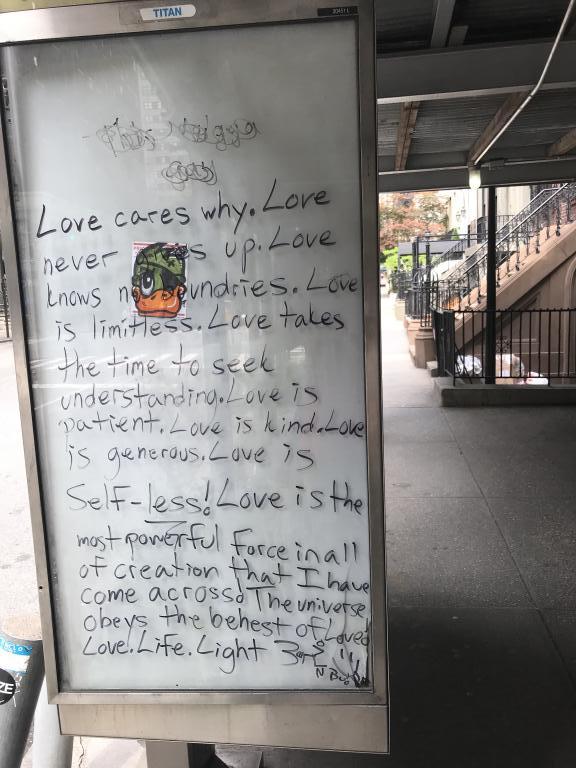 TITAN
Love cares why. Love
never s up. Love
knows n undries. Love
is limitless. Love takes
the time to seek
understanding. Love is
patient. Love is kind. Love
is generous. Love is
Self-less! Love is the
most powerful force in all
of creation that I have
come across. The universe
obeys the behest of Love
Love. Life. Light
ZE